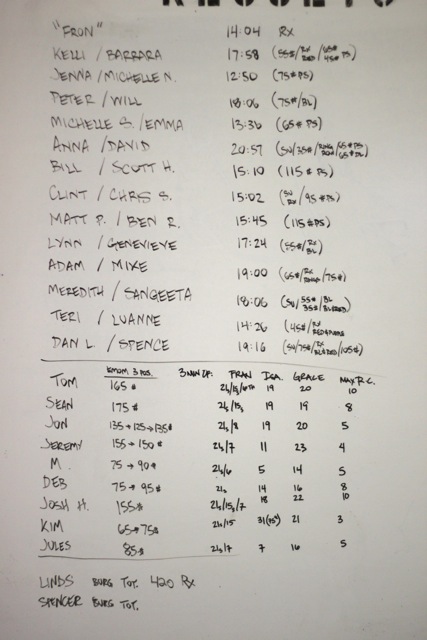 RESULTS
"FRON" 14:04 RX
KELLI / BARBARA 17:58 (55#/RX RED/65# 45# PS)
JENNA / MICHELLE N. 12:50 (75# PS)
PETER / WILL 18:06 (75#/BL)
MICHELLE S. / EMMA 13:36 (65# PS)
ANNA / DAVID 20:57 (SU/35#/RING ROW/65# PS 65# BL)
BILL / SCOTT H. 15:10 (115# PS)
CLINT / CHRIS S. 15:02 (SU RX/95# PS)
MATT P. / BEN R. 15:45 (115# PS)
LYNN / GENEVIEVE 17:24 (55#/RX BL)
ADAM / MIKE 19:00 (65#/RX RINGS/75#)
MEREDITH / SANGEETA 18:06 (SU/55# 35#/BL BL/RED)
TERI / LUANNE 14:26 (45#/RX)
DAN L. / SPENCE 19:16 (SU/75#/RX BL/RED/105#)
EMOM 3 POS. 3 MIN OF: FRAN DGA. GRACE MAX R.C.
TOM 165# 21/15/6TH 19 20 10
SEAN 175# 21/15 19 19 8
JON 135→125→135# 21/8 19 20 5
JEREMY 155→150# 21/7 11 23 4
M. 75→90# 21/6 5 14 5
DEB 75→95# 21 14 16 8
JOSH H. 155# 21/15/7 18 22 10
KIM 65→75# 21/15 31 21 3
JULES 85# 21/7 7 16 5
LINDS BURG TOT. 420 RX
SPENCER BURG TOT.